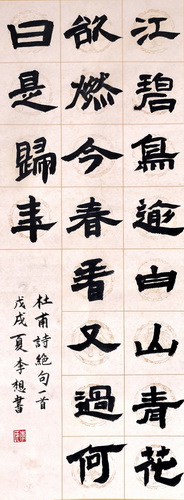 江碧鳥逾白山青花
欲燃今春看又過何
日是歸年
杜甫詩絕句一首
戊戌夏李想書